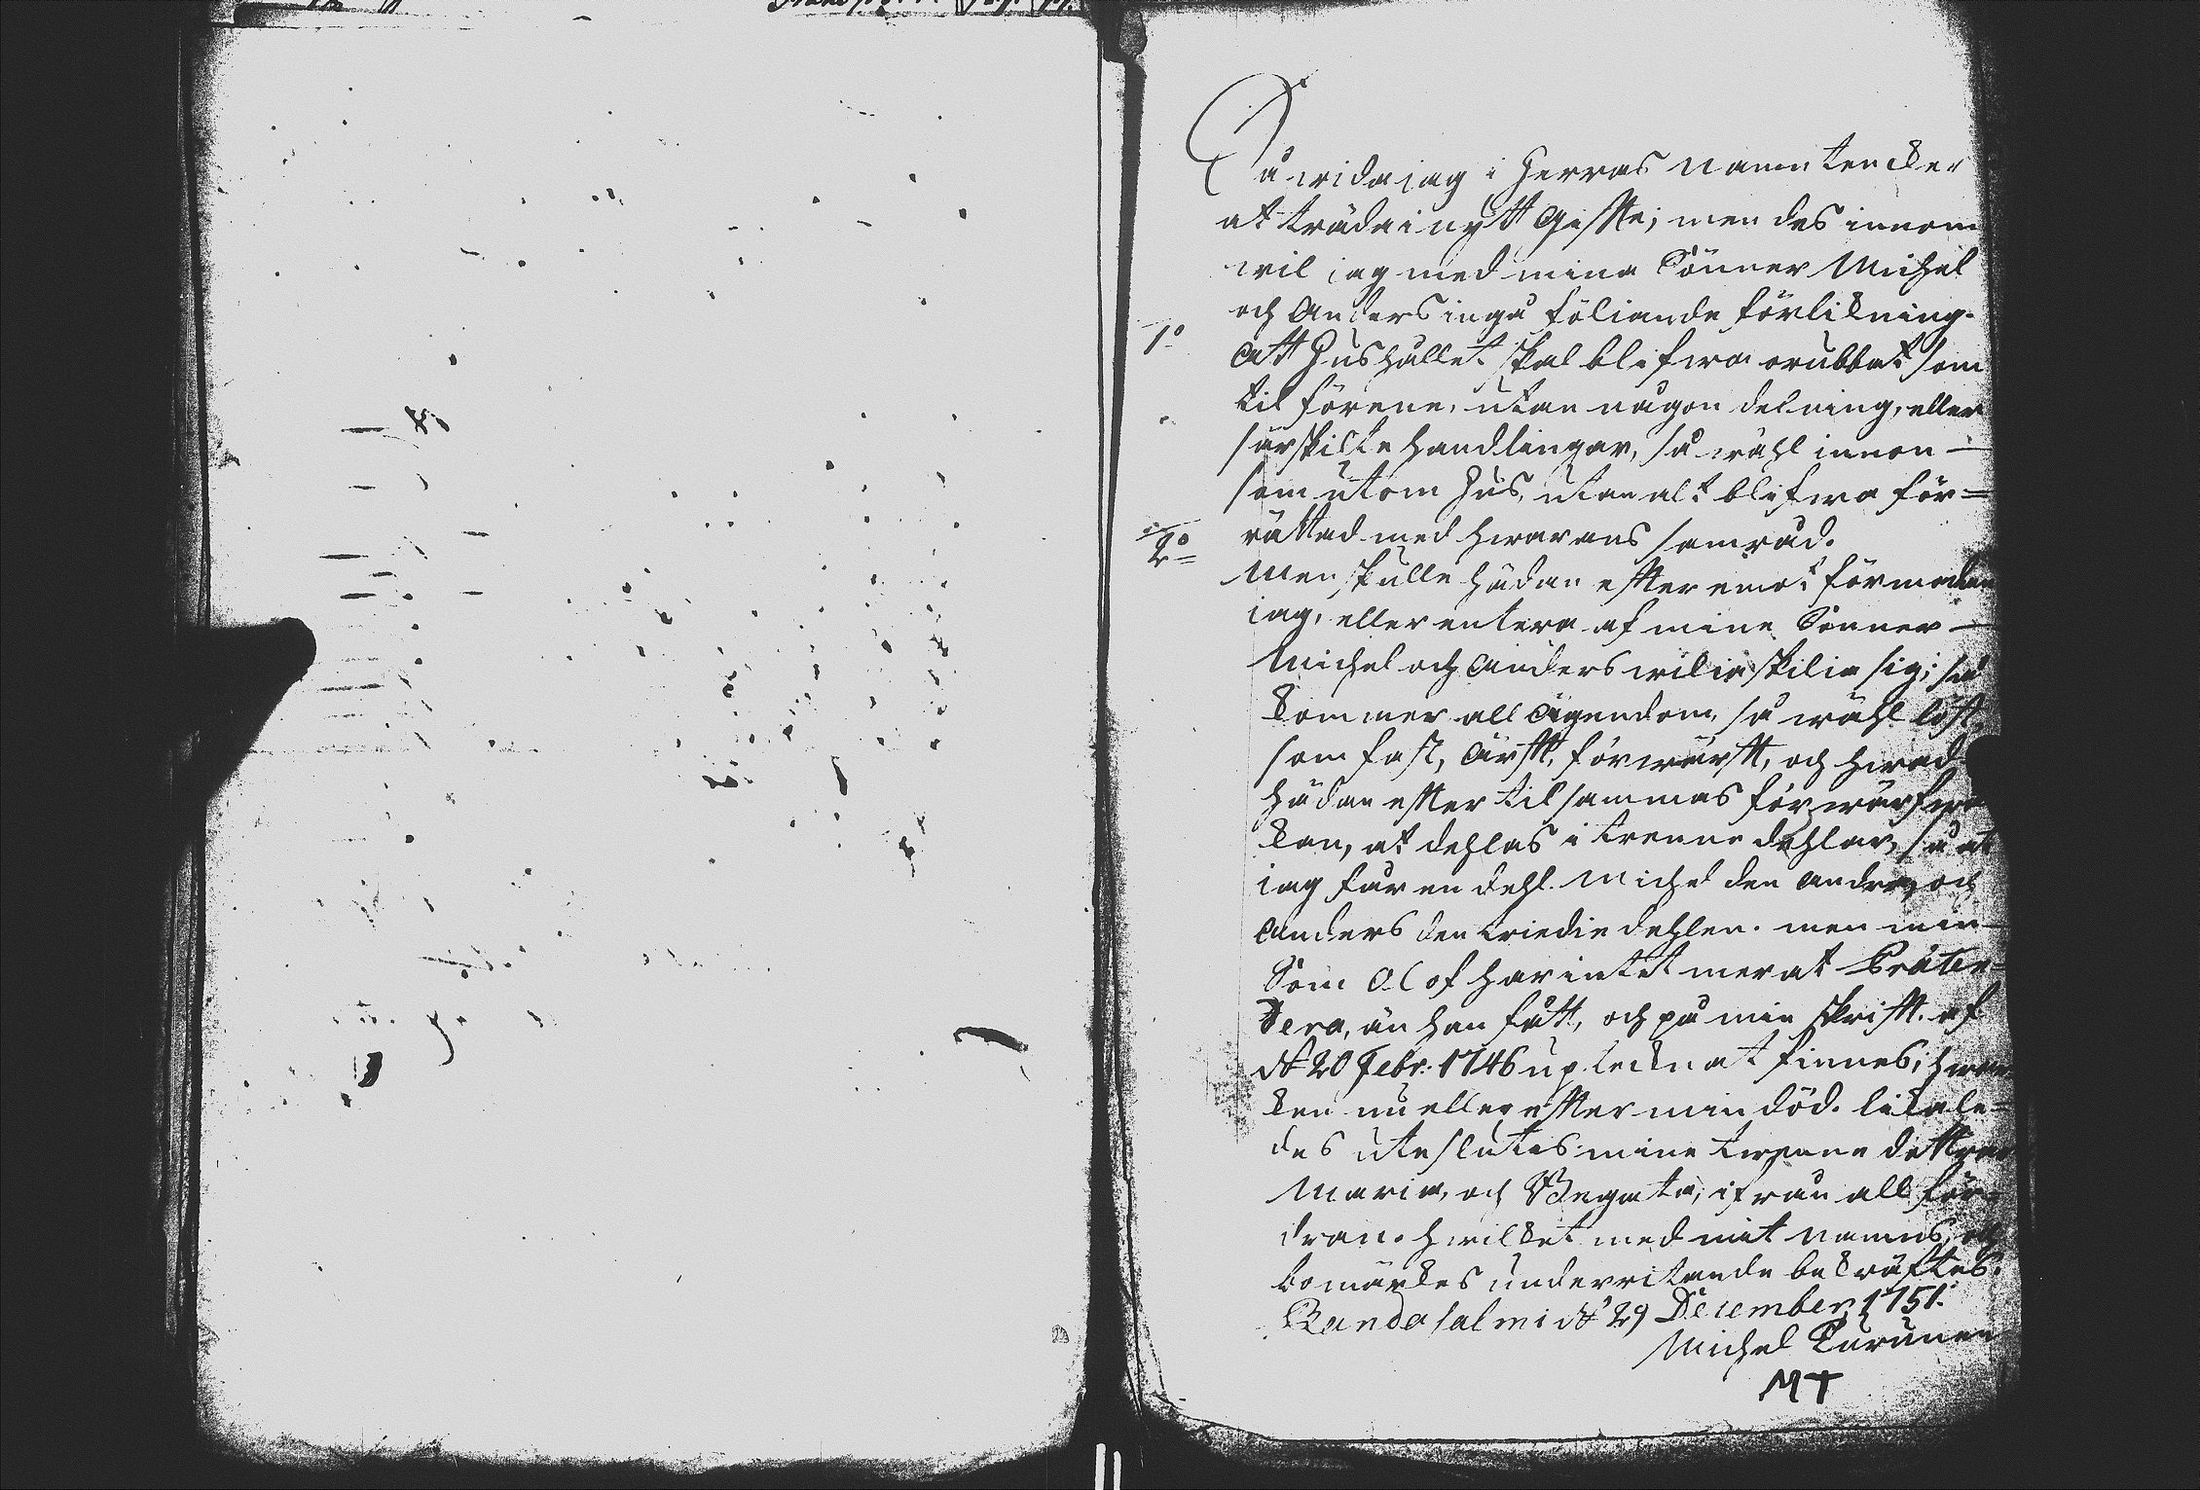 Så wida jag i Herrans namn tencker
at träda i nytt Gifte; men des innom
wil jag med mina Sönner Michel
och Anders ingå föliande förlikning.
1o Att Hushållet skal blifwa orubbat som
til förene, utan någon delning, eller
särskilte handlingar, så wähl innon
som utom Hus, utan alt blifwa för=
rättad med hwarans samråd.
2o Men skulle hädan effter emot förmodan
jag, eller entera af mine Sönner
Michel och Anders wilia skilia sig; så
kommer all ägendom, så wähl löst
som fast, ärfft, förwärfft, och hwad
hädan effter tilsammas förwärfwa
kan, at dehlas i trenne dehlar, så at
jag får en dehl. Michel den andra, och
Anders den triedie dehlen. men min
Son Olof har intet mer at Præten-
dera, än han fått, och på min skrifft af
d 20 Febr: 1746 uptecknat finnes; hwar-
ken nu eller effter min död. likale-
des uteslutes mine twenne döttrar
Maria, och Begata, ifrån all for-
dran. hwilket med mit namns, och
bomärkes underritande bekräftes.
Randasalmi d 29 December 1751.
Michel Turunen
MT